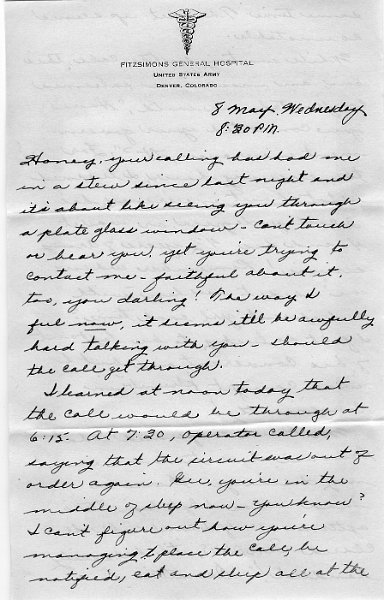 FITZSIMONS GENERAL HOSPITAL
UNITED STATES ARMY
DENVER, COLORADO
8 May. Wednesday
8:30 P.M.
Honey, your calling has had me
in a stew since last night and
it's about like seeing you through
a plate glass window - can't touch
or hear you, yet you're trying to
contact me - faithful about it,
too, you darling! The way I
feel now, it seems it'll be awfully
hard talking with you - should
the call get through.
I learned at noon today that
the call would be through at
6:15. At 7:20, operator called,
saying that the circuit was out of
order again. Gee, you're in the
middle of sleep now - you know?
I can't figure out how you're
managing to place the call, be
notified, eat and sleep all at the